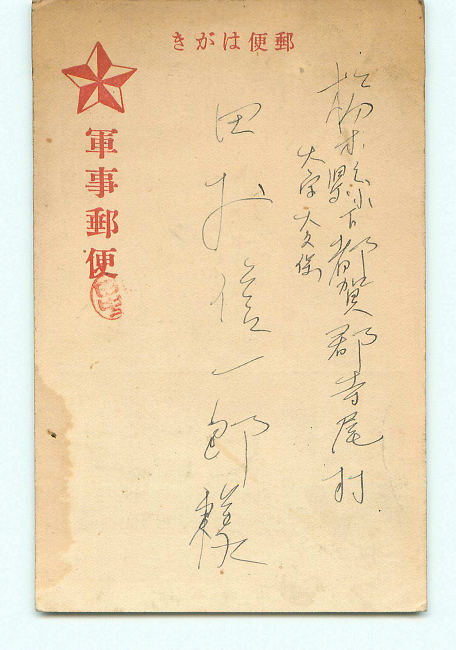 郵便はがき
栃木縣下都賀郡寺尾村
大字大久保
田村信一郎様
軍事郵便